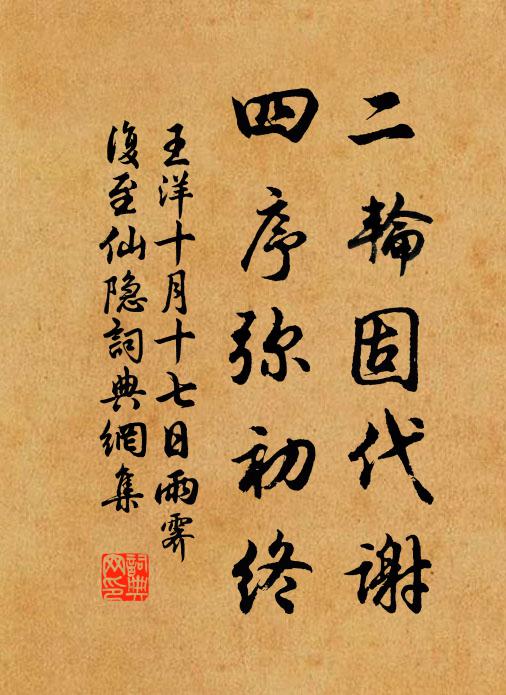 二輪固代謝
四序弥初終
王洋十月十七日雨霽
復至仙隐詞典網集
詞典
网印